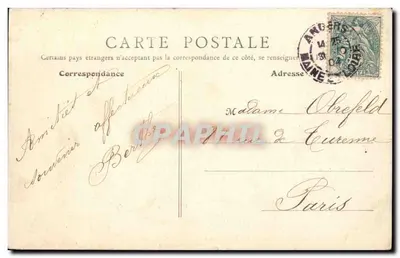 CARTE POSTALE
Certains pays étrangers n'acceptant pas la correspondance de ce côté, se renseigner
Correspondance
Adresse
ANGERS
MAINE LOIRE
Amitiés et
souvenir affectueux
Madame
de Turenne
Paris
CPAPHIL